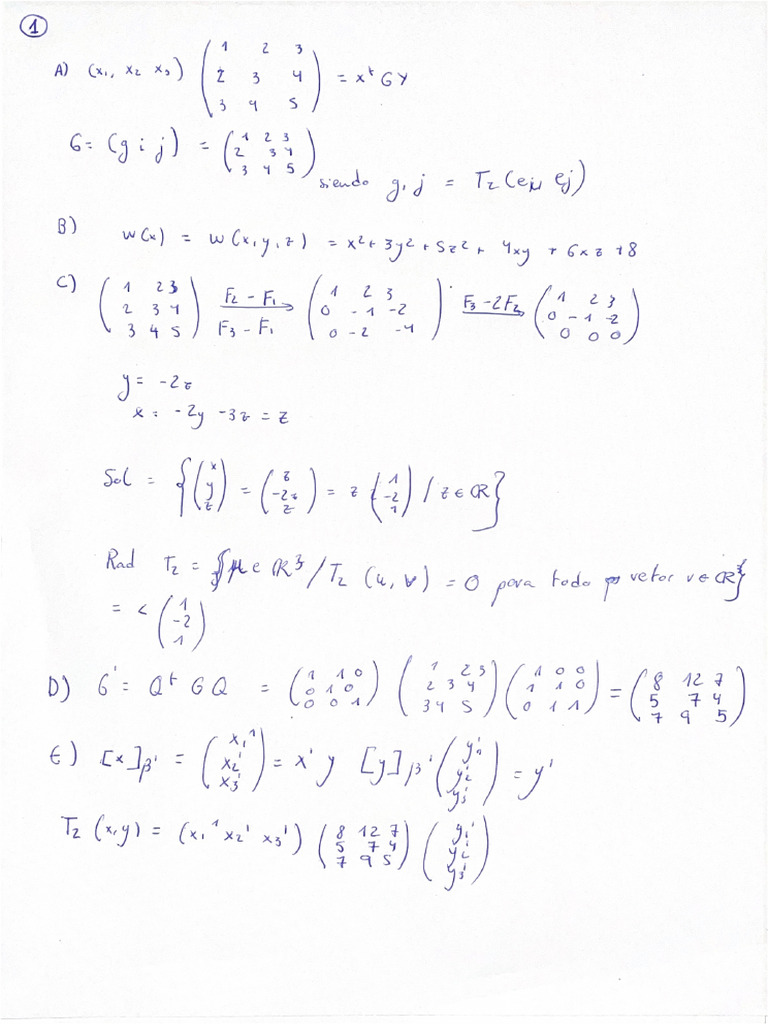 1
A) (x₁, x₂ x₃) ( 1 2 3 / 2 3 4 / 3 4 5 ) = xᵗ G Y
G = (g i j) = ( 1 2 3 / 2 3 4 / 3 4 5 ) siendo g, j = T₂ (e_i, e_j)
B) w(x) = w(x, y, z) = x² + 3y² + 5z² + 4xy + 6xz + 8
C) ( 1 2 3 / 2 3 4 / 3 4 5 ) F₂ - F₁ F₃ - F₁ → ( 1 2 3 / 0 -1 -2 / 0 -2 -4 ) F₃ - 2F₂ → ( 1 2 3 / 0 -1 -2 / 0 0 0 )
y = -2z
x = -2y - 3z = z
Sol = { ( x / y / z ) = ( z / -2z / z ) = z ( 1 / -2 / 1 ) / z ∈ ℝ }
Rad T₂ = { u ∈ ℝ³ / T₂ (u, v) = 0 para todo vetor v ∈ ℝ³ }
= < ( 1 / -2 / 1 )
D) G' = Qᵗ G Q = ( 1 1 0 / 0 1 0 / 0 0 1 ) ( 1 2 3 / 2 3 4 / 3 4 5 ) ( 1 0 0 / 1 1 0 / 0 1 1 ) = ( 8 12 7 / 5 7 4 / 7 9 5 )
E) [x]β' = ( x₁' / x₂' / x₃' ) = x' y [y]β' ( y₁' / y₂' / y₃' ) = y'
T₂ (x, y) = (x₁' x₂' x₃') ( 8 12 7 / 5 7 4 / 7 9 5 ) ( y₁' / y₂' / y₃' )